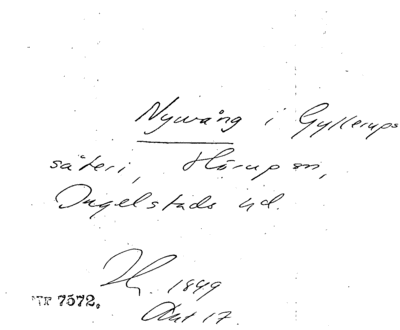 Nyvång i Gyllerups
säteri, Hörup sn,
Ingelstads hd.
1849
7572.
Akt 17